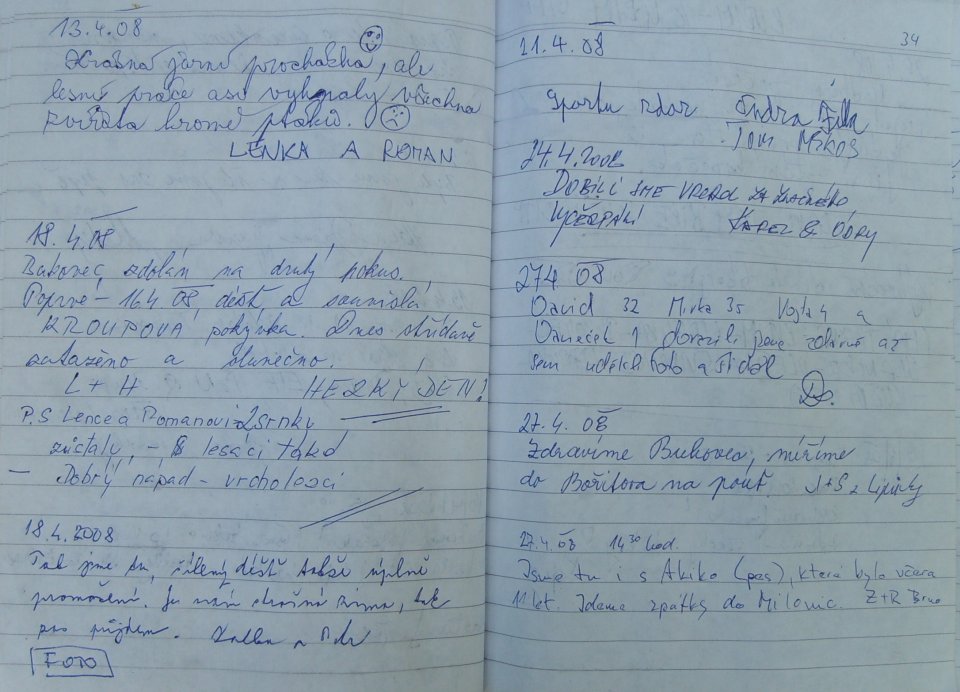 13.4.08
Krásná jarní procházka, ale
lesní práce asi vyhnaly všechna
zvířata kromě ptáků.
LENKA A ROMAN
18.4.08
Bukovec zdolán na druhý pokus.
Poprvé - 16.4. 08, déšť a souvislá
KROUPOVÁ pokrývka. Dnes střídavě
zataženo a slunečno.
L + H HEZKÝ DEN!
P.S Lence a Romanovi - 2 srnky
zůstaly, - lesáci také
- Dobrý nápad - vrcholoví
18.4.2008
Tak jsme tu, šílený déšť takže úplně
promočení. Je nám strašná zima, tak
pa
FOTO
34
21.4. 08
Sportu zdar Jindra
TOM MIKOŠ
24.4.2008
DOBILI SME VRCHOL
VYČERPÁNÍ KAREL &
27.4 08
David 32 Mirka 35 Vojta 4 a
1 dorazili
sem udělali foto a
27.4. 08
Zdravíme Bukovec, míříme
do Bořitova na pouť. J+S z Lipůvky
27.4.08 14 30 hod.
Jsme tu i s Akiko (pes), které bylo včera
11 let. Jdeme zpátky do Milonic. Z+R Brno